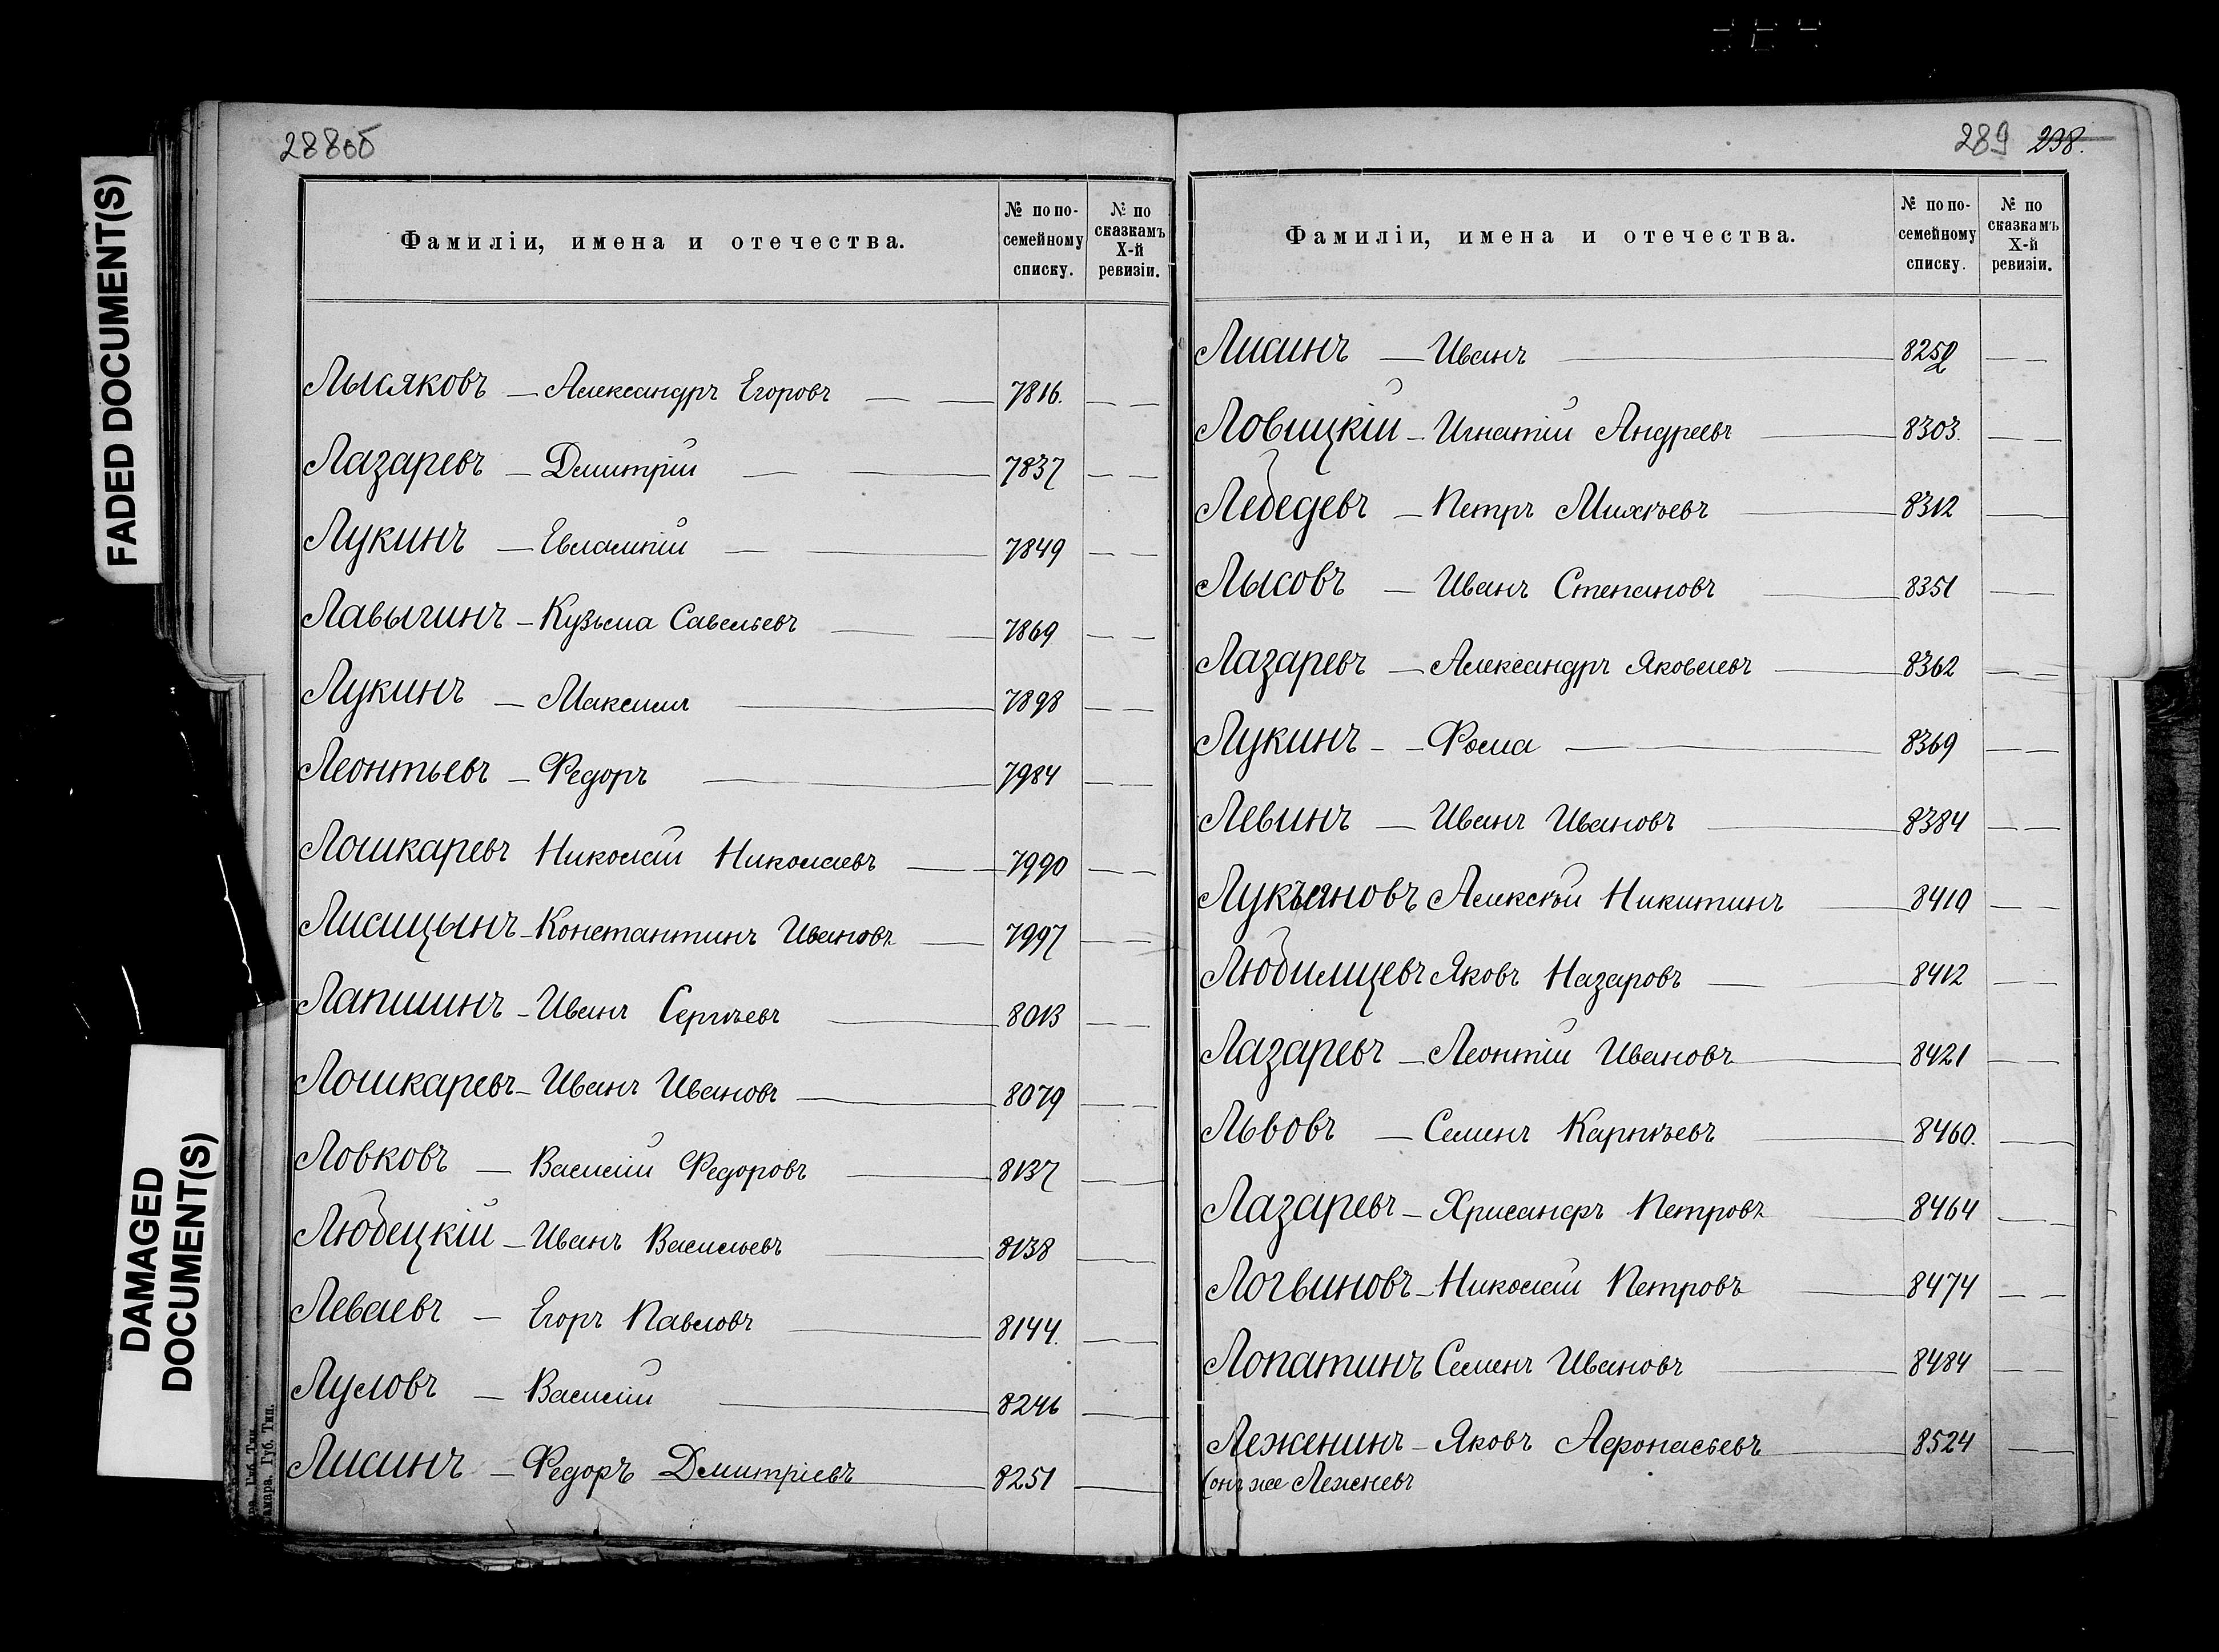 288об
Фамиліи, имена и отечества.
№ по по-
семейному
списку.
№ по
сказкамъ
X-й
ревизіи.
Лысяковъ — Александръ Егоровъ — — 7816. — —
Лазаревъ — Дмитрій — — 7837 — —
Лукинъ — Евлампій — — 7849 — —
Лавыгинъ — Кузьма Савельевъ — — 7869 — —
Лукинъ — Максимъ — 7898 — —
Леонтьевъ — Федоръ — 7984 — —
Лошкаревъ Николай Николаевъ — — 7990 — —
Лисицынъ — Константинъ Ивановъ — 7997 — —
Лапшинъ — Иванъ Сергѣевъ — 8013 — —
Лошкаревъ — Иванъ Ивановъ — 8079 — —
Ловковъ — Василій Федоровъ — 8137 — —
Любецкій — Иванъ Васильевъ — 8138 — —
Леваевъ — Егоръ Павловъ — 8144. — —
Лусловъ — Василій — 8246 — —
Лисинъ — Федоръ Дмитріевъ — 8251 — —
289 238.
Фамиліи, имена и отечества.
№ по по-
семейному
списку.
№ по
сказкамъ
X-й
ревизіи.
Лисинъ — Иванъ — 8252 — —
Ловицкій — Игнатій Андреевъ — 8303. — —
Лебедевъ — Петръ Михѣевъ — 8312 — —
Лысовъ — Иванъ Степановъ — 8351 — —
Лазаревъ — Александръ Яковлевъ — 8362 — —
Лукинъ — — Фома — — 8369 — —
Левинъ — Иванъ Ивановъ — 8384 — —
Лукьяновъ Алексѣй Никитинъ — 8410 — —
Любимцевъ Яковъ Назаровъ — — 8412 — —
Лазаревъ — Леонтій Ивановъ — 8421 — —
Львовъ — Семенъ Карпѣевъ — 8460. — —
Лазаревъ — Хрисанфъ Петровъ — 8464 — —
Логвиновъ — Николай Петровъ — 8474 — —
Лопатинъ Семенъ Ивановъ — 8484 — —
Леженинъ — Яковъ Афонасьевъ — 8524 — —
(онъ же Лежневъ
FADED DOCUMENT(S)
DAMAGED
DOCUMENT(S)
Губ. Тип.
Самара. Губ. Тип.